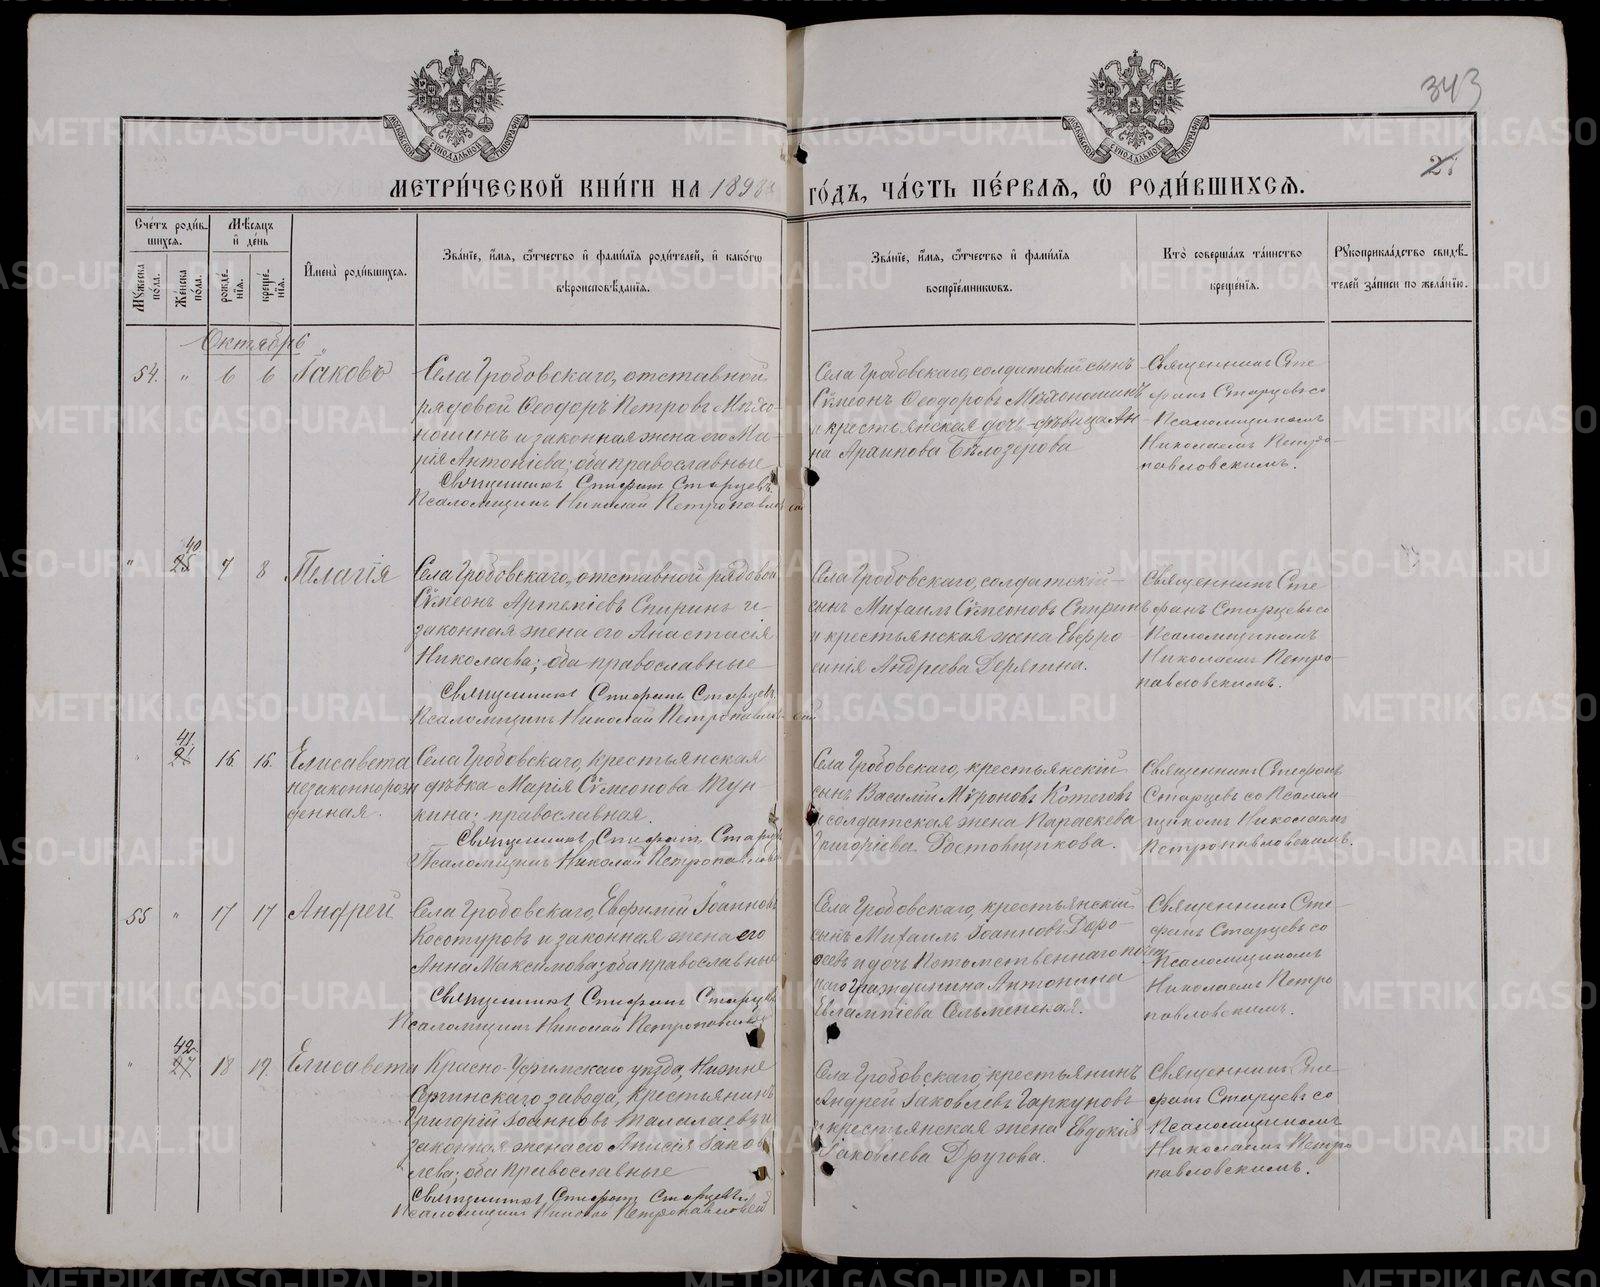 343
21
МЕТРИ́ЧЕСКОЙ КНИ́ГИ НА 1898й ГО́ДЪ, ЧА́СТЬ ПЕ́РВАЯ, Ѡ҆ РОДИ́ВШИХСЯ.
Сче́тъ роди́в-
шихся.
Мꙋ́жеска по́ла.
Же́нска по́ла.
Мѣ́сяцъ
и҆ де́нь
рожде́нїя.
креще́нїя.
И҆мена̀ роди́вшихся.
Зва́нїе, и҆́мя, ѻ҆́тчество и҆ фами́лїя роди́телей, и҆ како́гѡ
вѣроисповѣ́данїя.
Зва́нїе, и҆́мя, ѻ҆́тчество и҆ фами́лїя
воспрїе́мниковъ.
Кто̀ соверша́лъ та́инство
креще́нїя.
Рꙋкоприкла́дство свидѣ́-
телей за́писи по жела́нїю.
Октябрь
54. " 6 6 Іаковъ
Села Гробовскаго, отставной
рядовой Ѳеодоръ Петровъ Михо-
ношинъ и законная жена его Ма-
рія Антоніева; оба православные
Священникъ Стефанъ Старцевъ
Псаломщикъ Николай Петропавловской
Села Гробовскаго, солдатскій сынъ
Сѵмеонъ Ѳеодоровъ Михоношинъ
и крестьянская дочь-дѣвица Ан
на Архипова Бѣлозерова
Священникъ Сте
фанъ Старцевъ со
Псаломщикомъ
Николаемъ Петро-
павловскимъ.
" 40. 25 7 8 Пелагія
Села Гробовскаго, отставной рядовой
Сѵмеонъ Артеміевъ Спиринъ и
законная жена его Анастасія
Николаева; оба православные
Священникъ Стефанъ Старцевъ
Псаломщикъ Николай Петропавловской
Села Гробовскаго, солдатскій
сынъ Михаилъ Сѵмеоновъ Спиринъ
и крестьянская жена Евфро
синія Андреева Дерягина.
Священникъ Сте
фанъ Старцевъ со
Псаломщикомъ
Николаемъ Петро-
павловскимъ.
" 41. 16. 16. Елисавета
незаконнорож
денная.
Села Гробовскаго, крестьянская
дѣвка Марія Сѵмеонова Тун-
кина; православная.
Священникъ Стефанъ Старцевъ
Псаломщикъ Николай Петропавловс
Села Гробовскаго, крестьянскій
сынъ Василій Мѵроновъ Котеговъ
и солдатская жена Параскева
Григоріева Ростовщикова.
Священникъ Стефанъ
Старцевъ со Псалом
щикомъ Николаемъ
Петропавловскимъ.
55 " 17 17 Андрей
Села Гробовскаго, Евфимій Іоанновъ
Косотуровъ и законная жена его
Анна Максимова; оба православные
Священникъ Стефанъ Старцевъ
Псаломщикъ Николай Петропавловск
Села Гробовскаго, крестьянскій
сынъ Михаилъ Іоанновъ Доро-
феевъ и дочь Потомственнаго почет
наго гражданина Антонина
Евлампіева Сельменская.
Священникъ Сте-
фанъ Старцевъ со
Псаломщикомъ
Николаемъ Петро
павловскимъ.
" 42. 27 18 19 Елисавета
Красно-Уфимскаго уѣзда, Нижне
Сергинскаго завода, крестьянинъ
Григорій Іоанновъ Талалаевъ и
законная жена его Анисія Іаков
лева; оба православные
Священникъ Стефанъ Старцевъ
Псаломщикъ Николай Петропавловской
Села Гробовскаго, крестьянинъ
Андрей Іаковлевъ Гаркуновъ
и крестьянская жена Евдокія
Іаковлева Другова.
Священникъ Сте-
фанъ Старцевъ со
Псаломщикомъ
Николаемъ Петро
павловскимъ.
METRIKI.GASO-URAL.RU